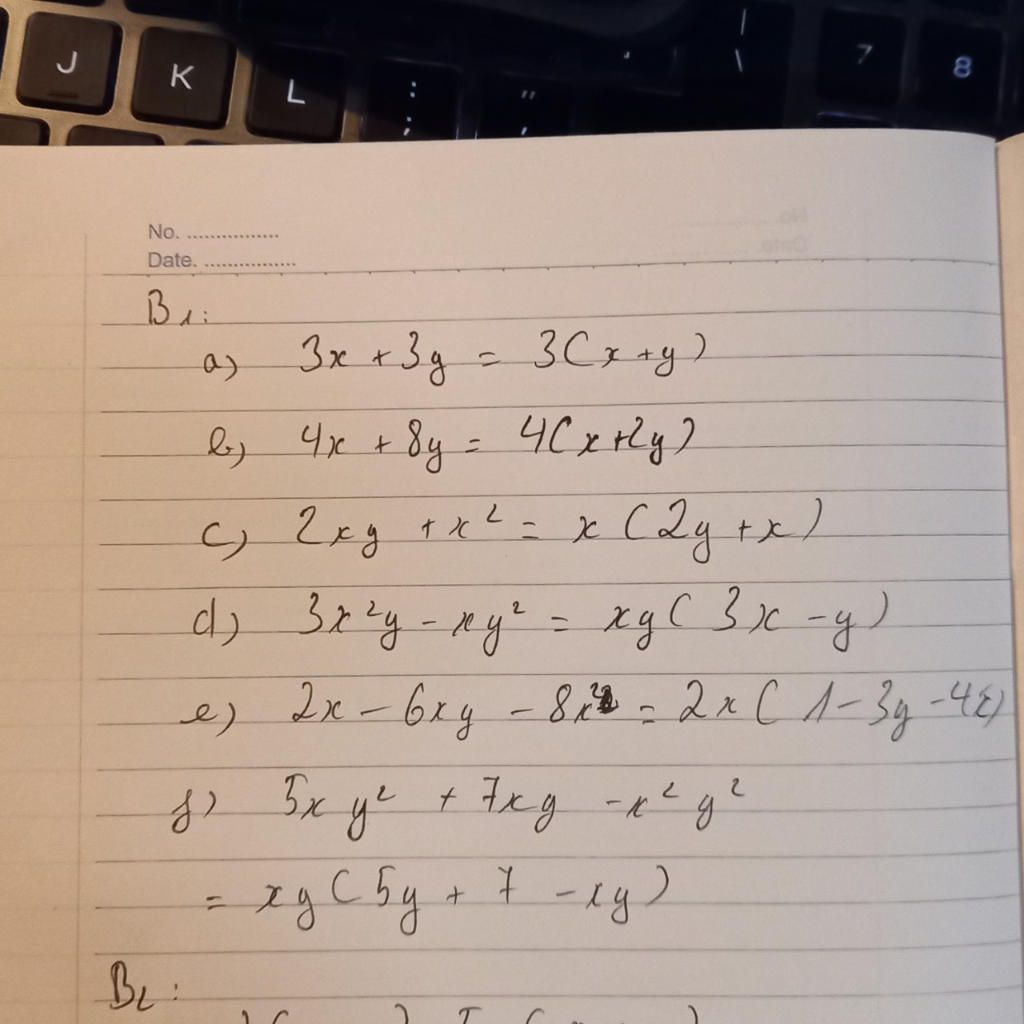 J K L : ; " ' | \ 7 8
No. ................
Date. ................
B1:
a) 3x + 3y = 3(x + y)
b) 4x + 8y = 4(x + 2y)
c) 2xy + x² = x(2y + x)
d) 3x²y - xy² = xy(3x - y)
e) 2x - 6xy - 8x² = 2x(1 - 3y - 4x)
f) 5xy² + 7xy - x²y²
= xy(5y + 7 - xy)
B2: